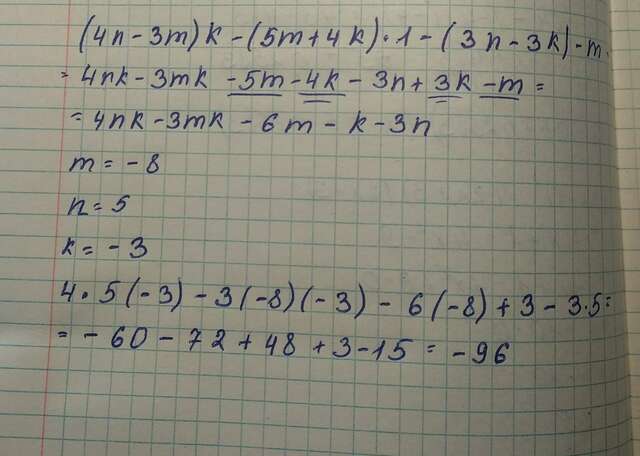 (4n - 3m) k - (5m + 4k) · 1 - (3n - 3k) - m.
= 4nk - 3mk - 5m - 4k - 3n + 3k - m =
= 4nk - 3mk - 6m - k - 3n
m = - 8
n = 5
k = - 3
4 · 5 (-3) - 3 (-8) (-3) - 6 (-8) + 3 - 3·5 =
= - 60 - 72 + 48 + 3 - 15 = - 96